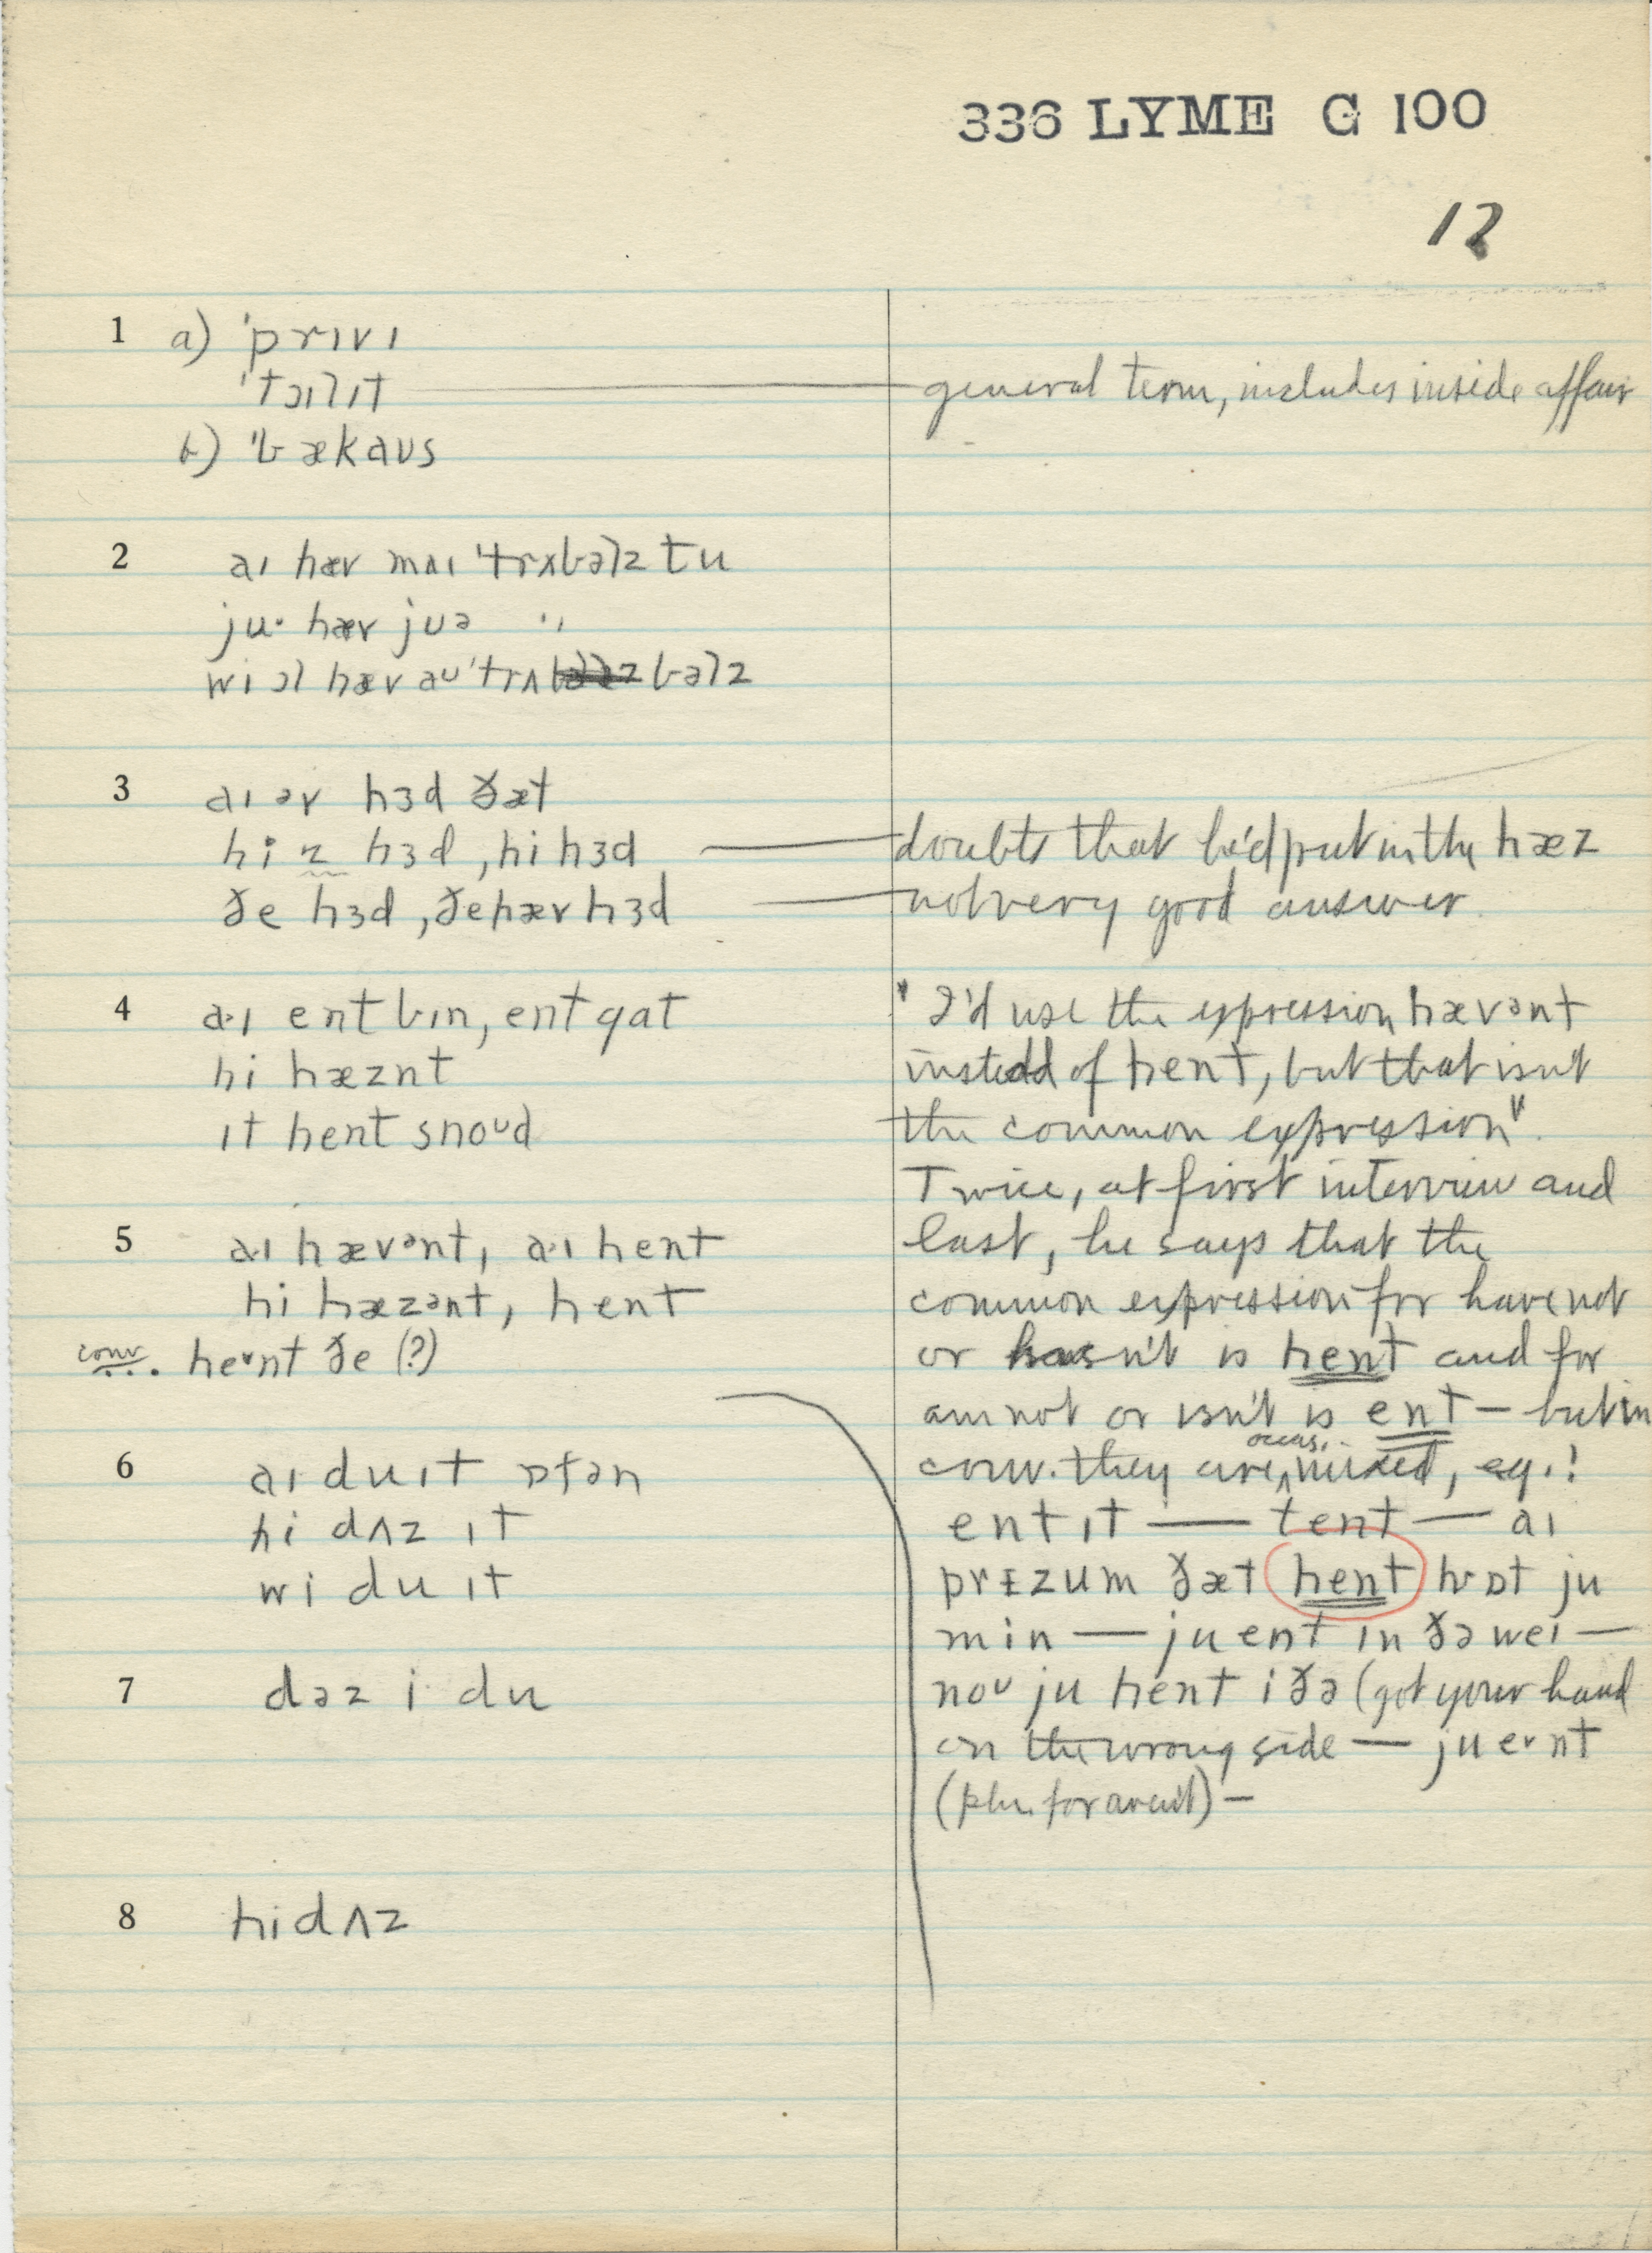 336 LYME G 100
12
1 a) ˈprɪvɪ
ˈtɔɪlɪt — general term, includes inside affair
b) ˈbækaus
2 aɪ hæv mʌɪ ˈtrʌbəlz tu
ju· hæv juə "
wi ɔl hæv aʊ ˈtrʌbəlz
3 aɪ əv hɜd ðæt
hi z hɜd, hi hɜd — doubts that he'd put in the hæz
ðe hɜd, ðe hæv hɜd — not very good answer
4 a·ɪ ent bɪn, ent gat
hi hæznt
ɪt hent snoud
"I'd use the expression hævənt
instead of hent, but that isn't
the common expression".
Twice, at first interview and
last, he says that the
common expression for have not
or hasn't is hent and for
am not or isn't is ent — but in
conv. they are occas. mixed, eg.:
ent ɪt — tent — aɪ
prɪzum ðæt hent hwɒt ju
min — ju ent ɪn ðə weɪ —
nou ju hent iðə (got your hand
on the wrong side — ju e˅nt
(plu. for aren't) —
5 a·ɪ hævənt, a·ɪ hent
hi hæzənt, hent
conv. he˅nt ðe (?)
6 aɪ du ɪt ɒfən
hi dʌz ɪt
wi du ɪt
7 dəz i· du
8 hi dʌz